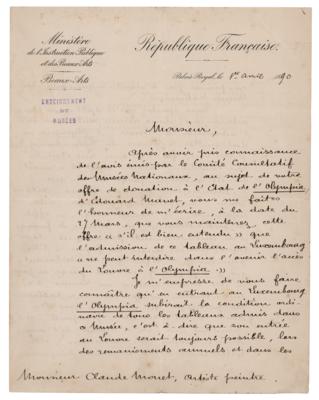 Ministère
de l'Instruction Publique
et des Beaux-Arts
Beaux-Arts
République Française.
Palais-Royal, le 1er avril 1890
ENSEIGNEMENT
ET
MUSÉES
Monsieur,
Après avoir pris connaissance
de l'avis émis par le Comité Consultatif
des Musées Nationaux, au sujet de votre
offre de donation à l'Etat de l'Olympia,
d'Edouard Manet, vous me faites
l'honneur de m'écrire, à la date du
27 Mars, que vous maintenez cette
offre « s'il est bien entendu » que
« l'admission de ce tableau au Luxembourg
« ne peut interdire dans l'avenir l'accès
du Louvre à l'Olympia. »
Je m'empresse de vous faire
connaître qu'en entrant au Luxembourg
l'Olympia subirait la condition ordi-
naire de tous les tableaux admis dans
ce Musée, c'est à dire que son entrée
au Louvre serait toujours possible, lors
des remaniements annuels et dans les
Monsieur Claude Monet, Artiste peintre.